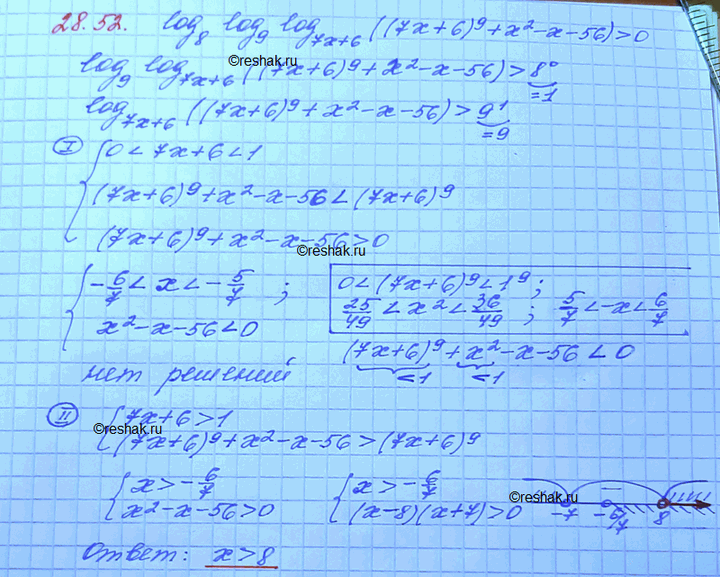 28.52. log₈ log₉ log₇ₓ₊₆ ((7x+6)⁹+x²-x-56)>0
©reshak.ru
log₉ log₇ₓ₊₆ ((7x+6)⁹+x²-x-56)>8⁰
=1
log₇ₓ₊₆ ((7x+6)⁹+x²-x-56)>9¹
=9
I { 0<7x+6<1
(7x+6)⁹+x²-x-56<(7x+6)⁹
(7x+6)⁹+x²-x-56>0
©reshak.ru
{ -6/7<x<-5/7 ;
x²-x-56<0
0<(7x+6)⁹<1⁹;
25/49<x²<36/49 ; 5/7<-x<6/7
(7x+6)⁹+x²-x-56<0
<1 <1
нет решений
II { 7x+6>1
©reshak.ru
(7x+6)⁹+x²-x-56>(7x+6)⁹
{ x>-6/7
x²-x-56>0
{ x>-6/7
(x-8)(x+7)>0
©reshak.ru
-7 -6/7 8
Ответ: x>8